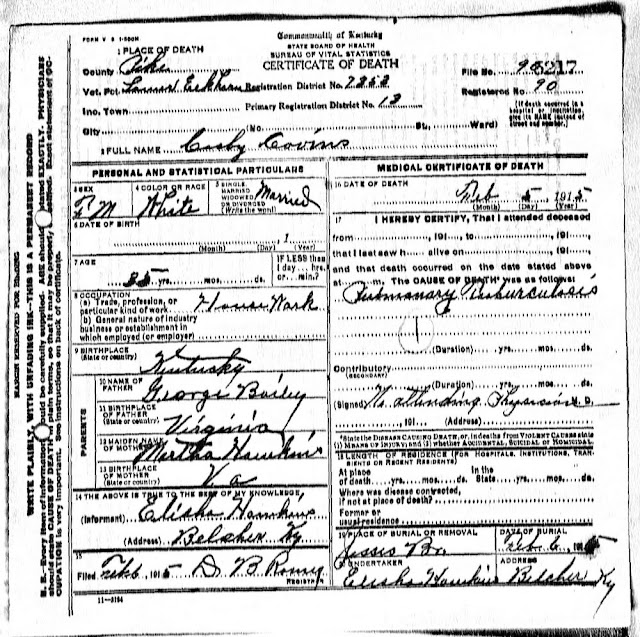 FORM V S 1-500M
Commonwealth of Kentucky
STATE BOARD OF HEALTH
BUREAU OF VITAL STATISTICS
CERTIFICATE OF DEATH
1 PLACE OF DEATH
County Pike
File No.
Vot. Pct. Registration District No. 7353
Registered No. 90
Inc. Town Primary Registration District No. 13
(If death occurred in a hospital or institution, give its NAME instead of street and number.)
City (No. St., Ward)
2 FULL NAME Cosby Covins
PERSONAL AND STATISTICAL PARTICULARS
3 SEX
F M
4 COLOR OR RACE
White
5 SINGLE, MARRIED, WIDOWED OR DIVORCED (Write the word)
Married
6 DATE OF BIRTH
, 1
(Month) (Day) (Year)
7 AGE
35 yrs. mos. ds.
IF LESS than 1 day ... hrs. or ... min.?
8 OCCUPATION
(a) Trade, profession, or particular kind of work House Work
(b) General nature of industry business or establishment in which employed (or employer)
9 BIRTHPLACE
(State or country) Kentucky
PARENTS
10 NAME OF FATHER George Bailey
11 BIRTHPLACE OF FATHER (State or country) Virginia
12 MAIDEN NAME OF MOTHER Martha Hawkins
13 BIRTHPLACE OF MOTHER (State or country) Va
14 THE ABOVE IS TRUE TO THE BEST OF MY KNOWLEDGE
(Informant) Elisha Hawkins
(Address) Belcher Ky
15
Filed Feb 6, 1915 D B
REGISTRAR
11-3184
MEDICAL CERTIFICATE OF DEATH
16 DATE OF DEATH
Feb 5 1915
(Month) (Day) (Year)
17 I HEREBY CERTIFY, That I attended deceased
from , 191 , to , 191 ,
that I last saw h alive on , 191 ,
and that death occurred on the date stated above
at m. The CAUSE OF DEATH* was as follows:
Pulmonary Tuburculosis
1
(Duration) yrs. mos. ds.
Contributory
(SECONDARY)
(Duration) yrs. mos. ds.
(Signed) No attending Physician M. D.
, 191 (Address)
*State the DISEASE CAUSING DEATH, or in deaths from VIOLENT CAUSES state (1) MEANS OF INJURY; and (2) whether ACCIDENTAL, SUICIDAL or HOMICIDAL
18 LENGTH OF RESIDENCE (FOR HOSPITALS, INSTITUTIONS, TRANSIENTS OR RECENT RESIDENTS)
At place of death yrs. mos. ds. In the State yrs. mos. ds.
Where was disease contracted, if not at place of death?
Former or usual residence
19 PLACE OF BURIAL OR REMOVAL
DATE OF BURIAL
Feb 6, 1915
20 UNDERTAKER
ADDRESS
Elisha Hawkins Belcher Ky
MARGIN RESERVED FOR BINDING
WRITE PLAINLY, WITH UNFADING INK—THIS IS A PERMANENT RECORD